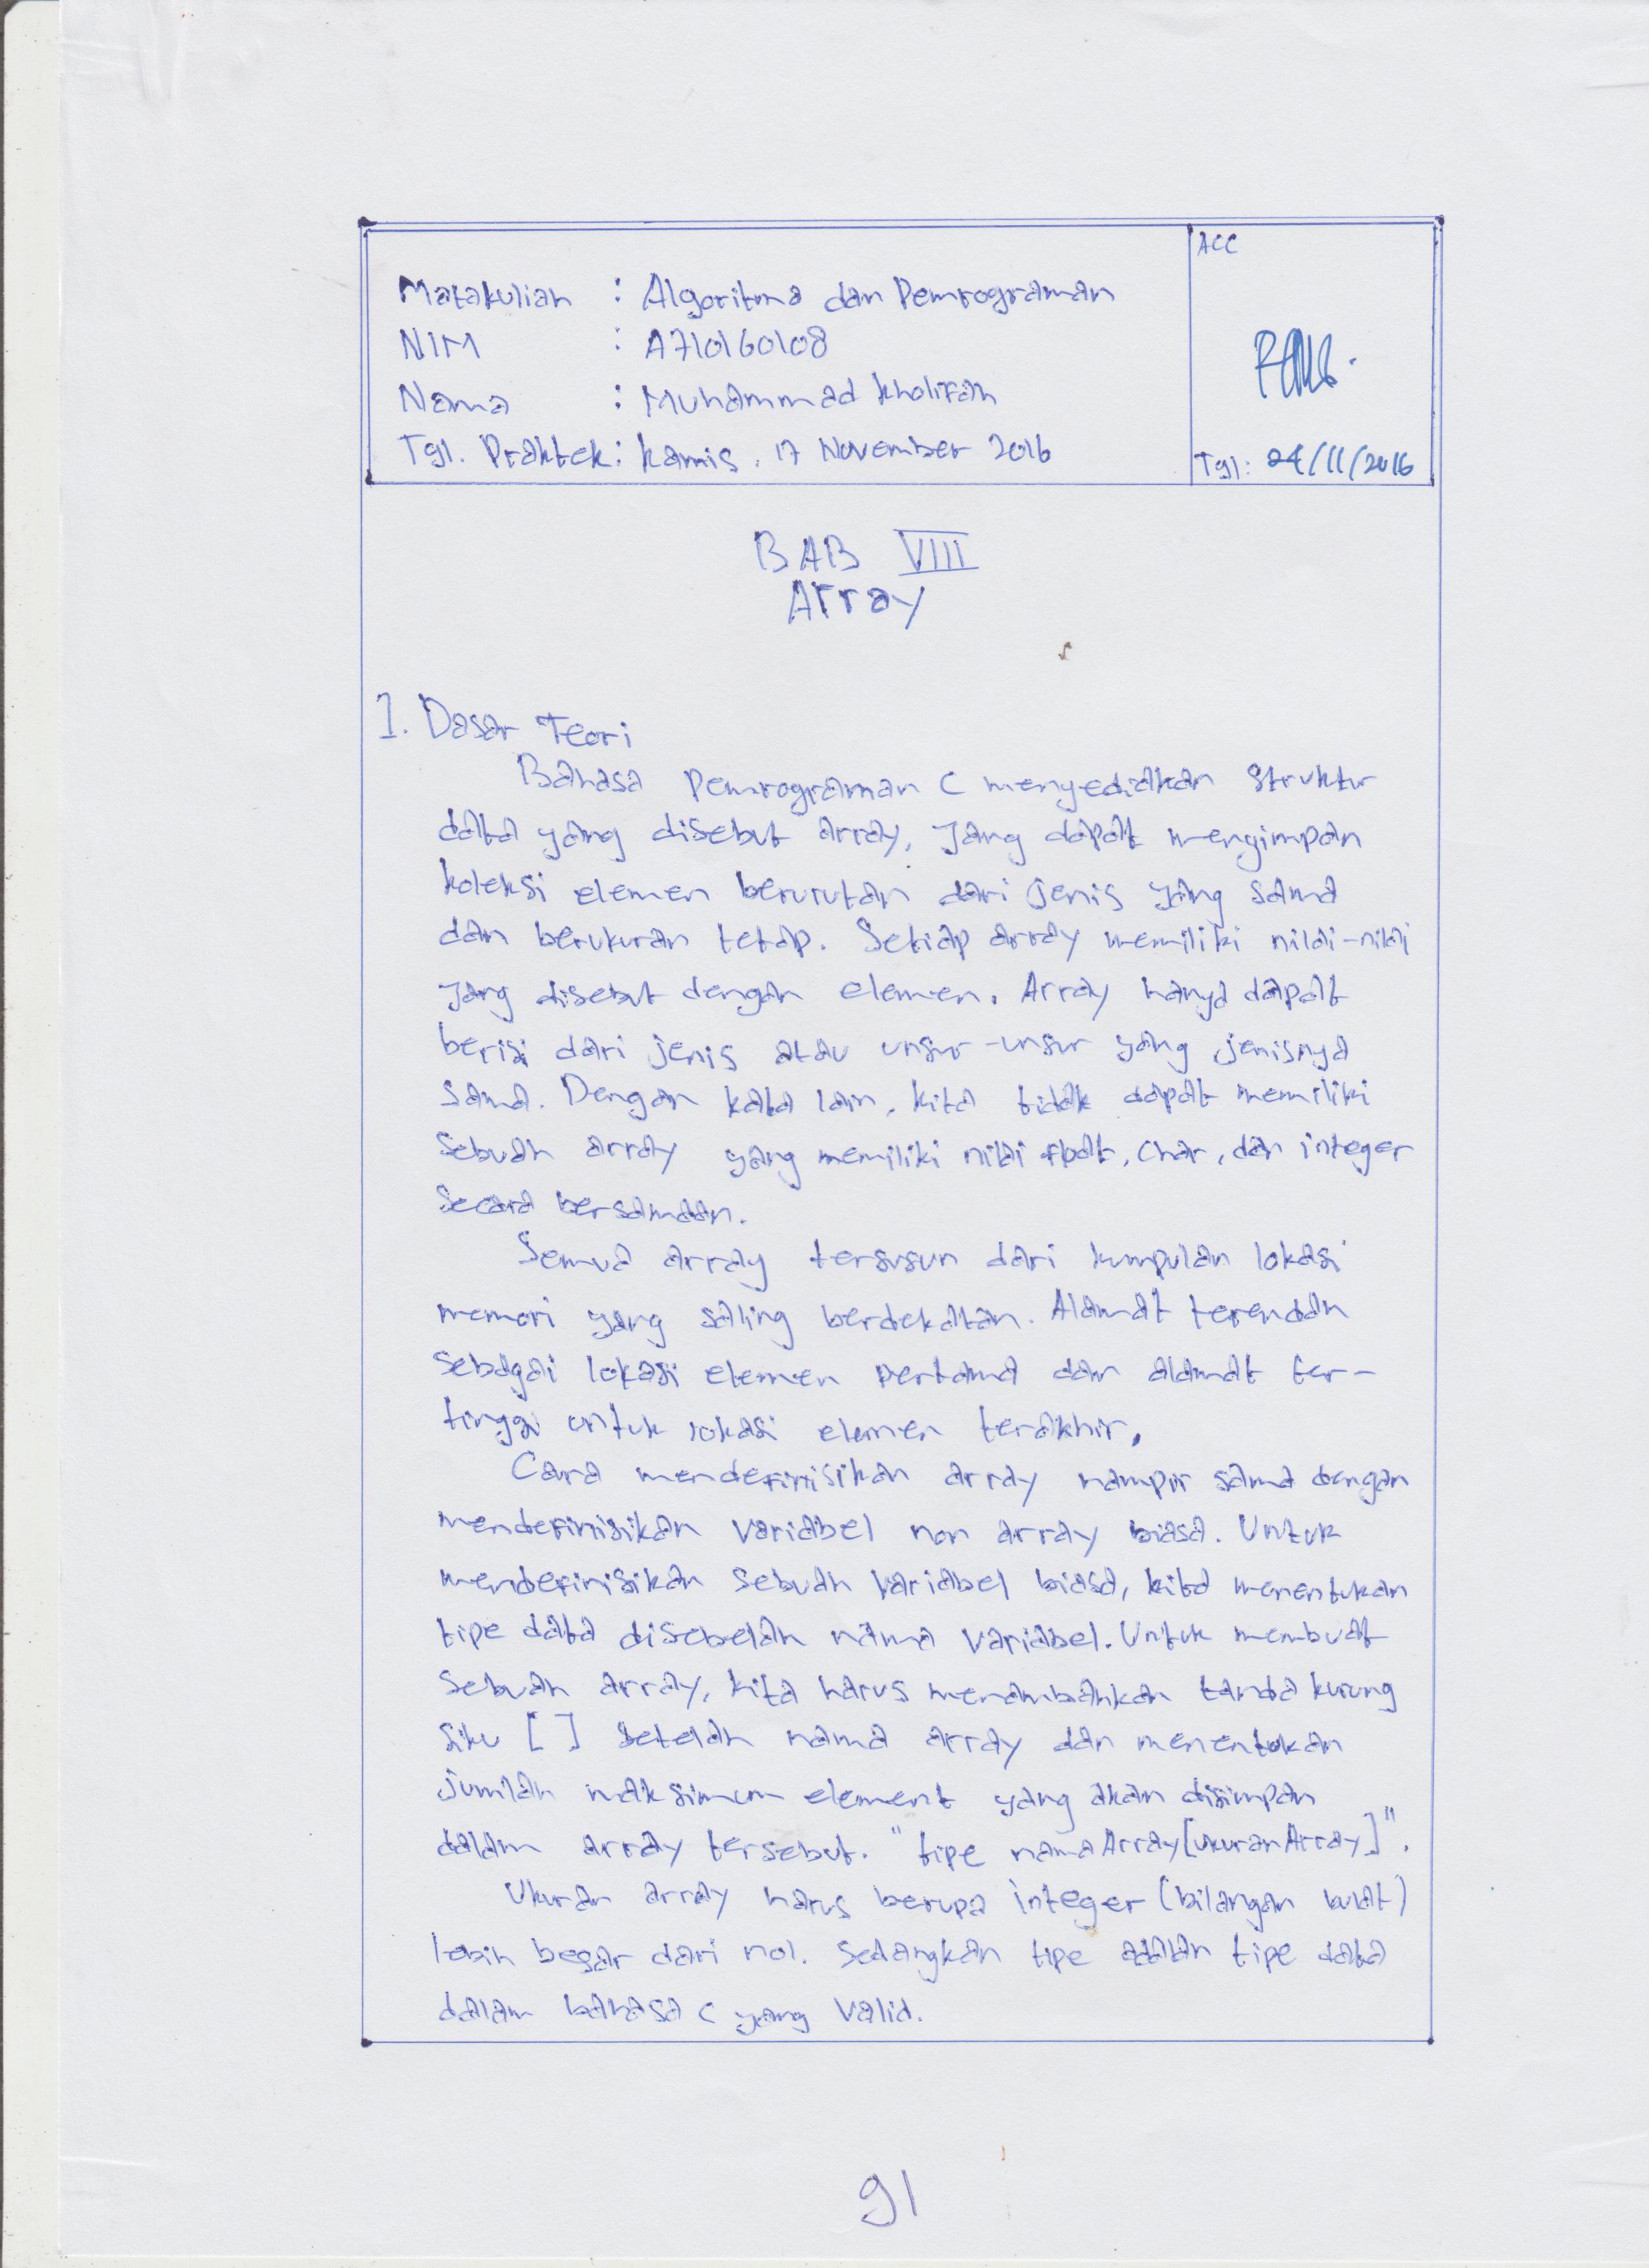 ACC
Matakuliah : Algoritma dan Pemrograman
NIM : A710160108
Nama : Muhammad Kholifah
Tgl. Praktek : Kamis, 17 November 2016
Tgl: 24/11/2016
BAB VIII
Array
I. Dasar Teori
Bahasa Pemrograman C menyediakan struktur
data yang disebut array, yang dapat menyimpan
koleksi elemen berurutan dari jenis yang sama
dan berukuran tetap. Setiap array memiliki nilai-nilai
yang disebut dengan elemen. Array hanya dapat
berisi dari jenis atau unsur-unsur yang jenisnya
sama. Dengan kata lain, kita tidak dapat memiliki
sebuah array yang memiliki nilai float, char, dan integer
secara bersamaan.
Semua array tersusun dari kumpulan lokasi
memori yang saling berdekatan. Alamat terendah
sebagai lokasi elemen pertama dan alamat ter-
tinggi untuk lokasi elemen terakhir.
Cara mendefinisikan array hampir sama dengan
mendefinisikan variabel non array biasa. Untuk
mendefinisikan sebuah variabel biasa, kita menentukan
tipe data disebelah nama variabel. Untuk membuat
sebuah array, kita harus menambahkan tanda kurung
siku [ ] setelah nama array dan menentukan
jumlah maksimum element yang akan disimpan
dalam array tersebut. "tipe namaArray[ukuranArray]".
Ukuran array harus berupa integer (bilangan bulat)
lebih besar dari nol. Sedangkan tipe adalah tipe data
dalam bahasa C yang valid.
91